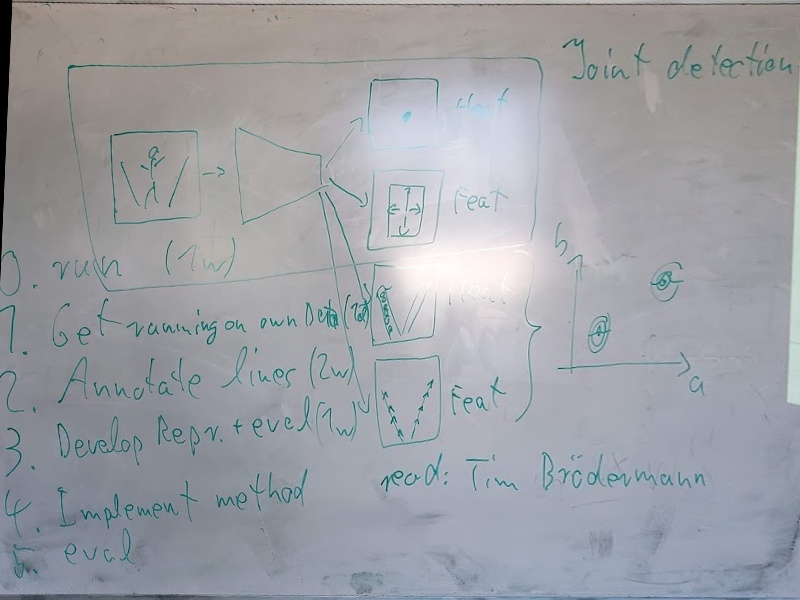 Joint detection
Heat
Feat
0. run (1w)
1. Get running on own Data
2. Annotate lines (2w)
3. Develop Repr. + eval (1w)
4. Implement method
5. eval
Heat
Feat
b
a
read: Tim Brödermann